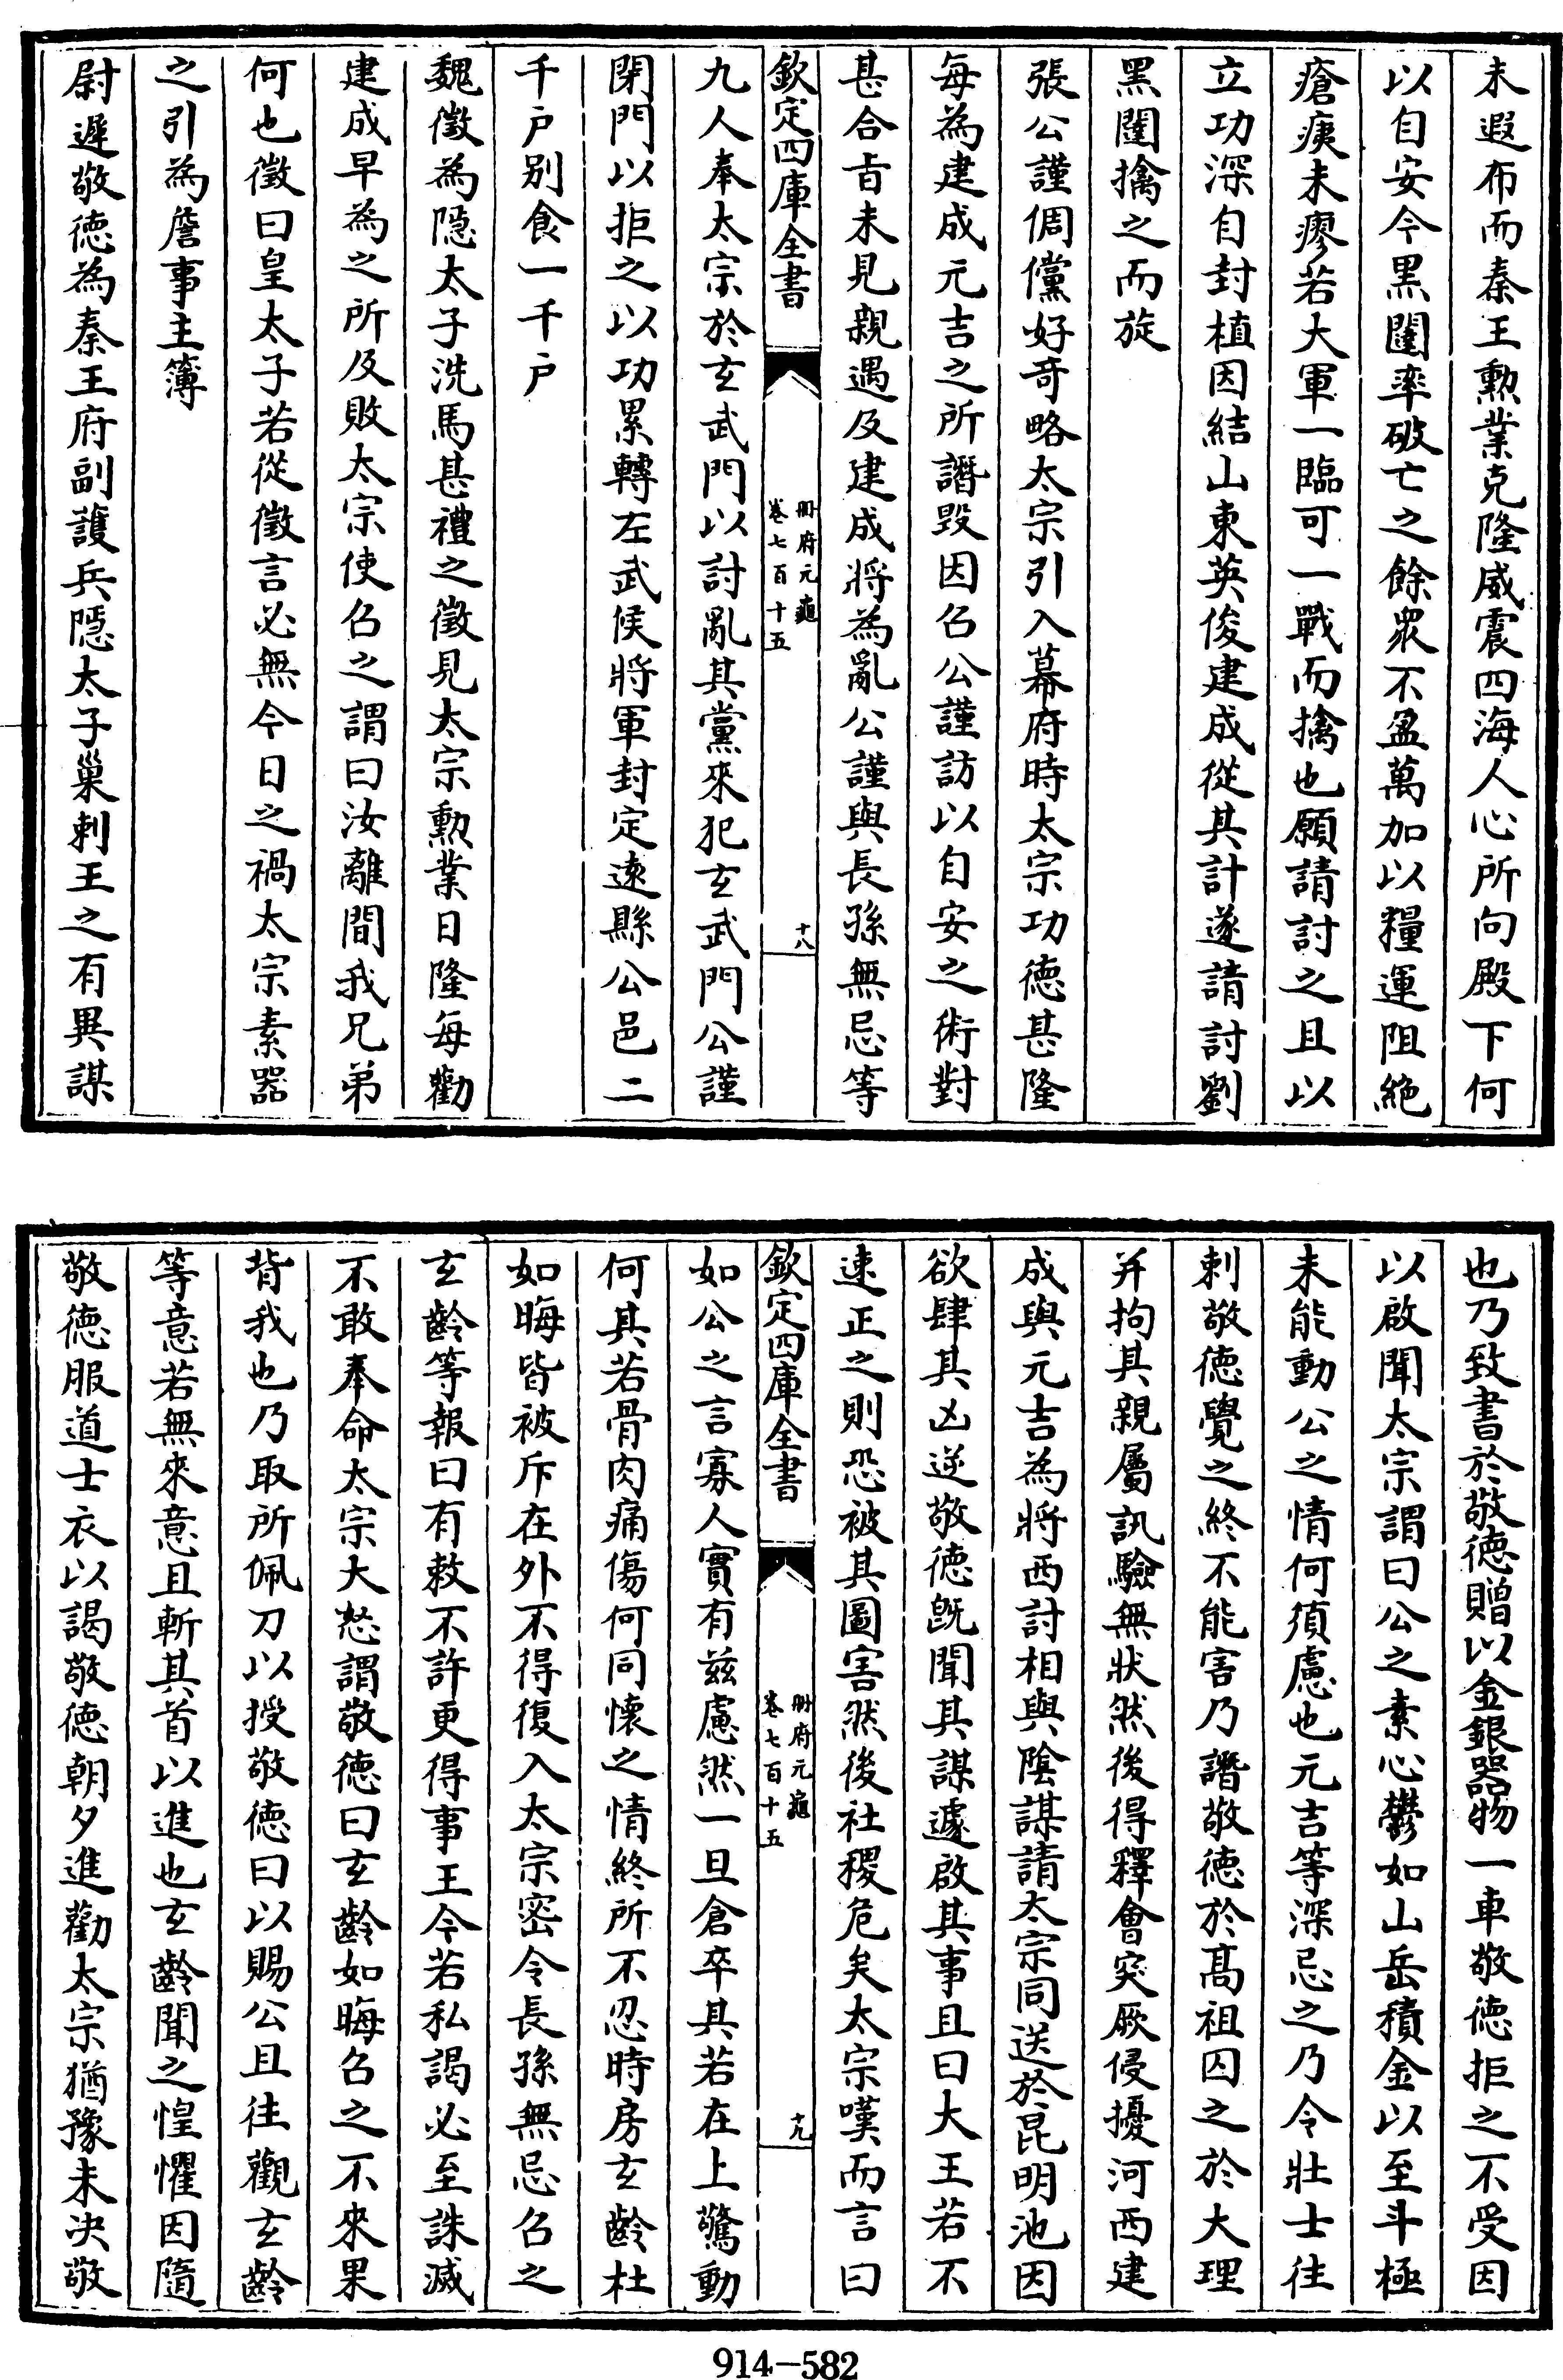 未遐布而秦王勲業克隆威震四海人心所向殿下何
以自安今黑闥率破亡之餘衆不盈萬加以糧運阻絶
瘡痍未瘳若大軍一臨可一戰而擒也願請討之且以
立功深自封植因結山東英俊建成從其計遂請討劉
黑闥擒之而旋
張公謹倜儻好奇略太宗引入幕府時太宗功徳甚隆
每為建成元吉之所譖毁因召公謹訪以自安之術對
甚合㫖未見親遇及建成將為亂公謹與長孫無忌等
欽定四庫全書
冊府元龜
卷七百十五
十八
九人奉太宗於玄武門以討亂其黨來犯玄武門公謹
閉門以拒之以功累轉左武候將軍封定逺縣公邑二
千户别食一千户
魏徵為隱太子洗馬甚禮之徵見太宗勲業日隆每勸
建成早為之所及敗太宗使召之謂曰汝離間我兄弟
何也徵曰皇太子若從徵言必無今日之禍太宗素器
之引為詹事主簿
尉遲敬徳為秦王府副護兵隠太子巢剌王之有異謀
也乃致書於敬徳贈以金銀器物一車敬徳拒之不受因
以啟聞太宗謂曰公之素心鬱如山岳積金以至斗極
未能動公之情何須慮也元吉等深忌之乃令壯士往
刺敬徳覺之終不能害乃譖敬徳於髙祖囚之於大理
并拘其親屬訊驗無狀然後得釋會突厥侵擾河西建
成與元吉為將西討相與隂謀請太宗同送於昆明池因
欲肆其凶逆敬徳既聞其謀遽啟其事且曰大王若不
速正之則恐被其圖害然後社稷危矣太宗嘆而言曰
欽定四庫全書
冊府元龜
卷七百十五
十九
如公之言寡人實有兹慮然一旦倉卒其若在上驚動
何其若骨肉痛傷何同懐之情終所不忍時房玄齡杜
如晦皆被斥在外不得復入太宗密令長孫無忌召之
玄齡等報曰有敕不許更得事王今若私謁必至誅滅
不敢奉命太宗大怒謂敬徳曰玄齡如晦召之不來果
背我也乃取所佩刀以授敬徳曰以賜公且往觀玄齡
等意若無來意且斬其首以進也玄齡聞之惶懼因隨
敬徳服道士衣以謁敬徳朝夕進勸太宗猶豫未决敬
914-582